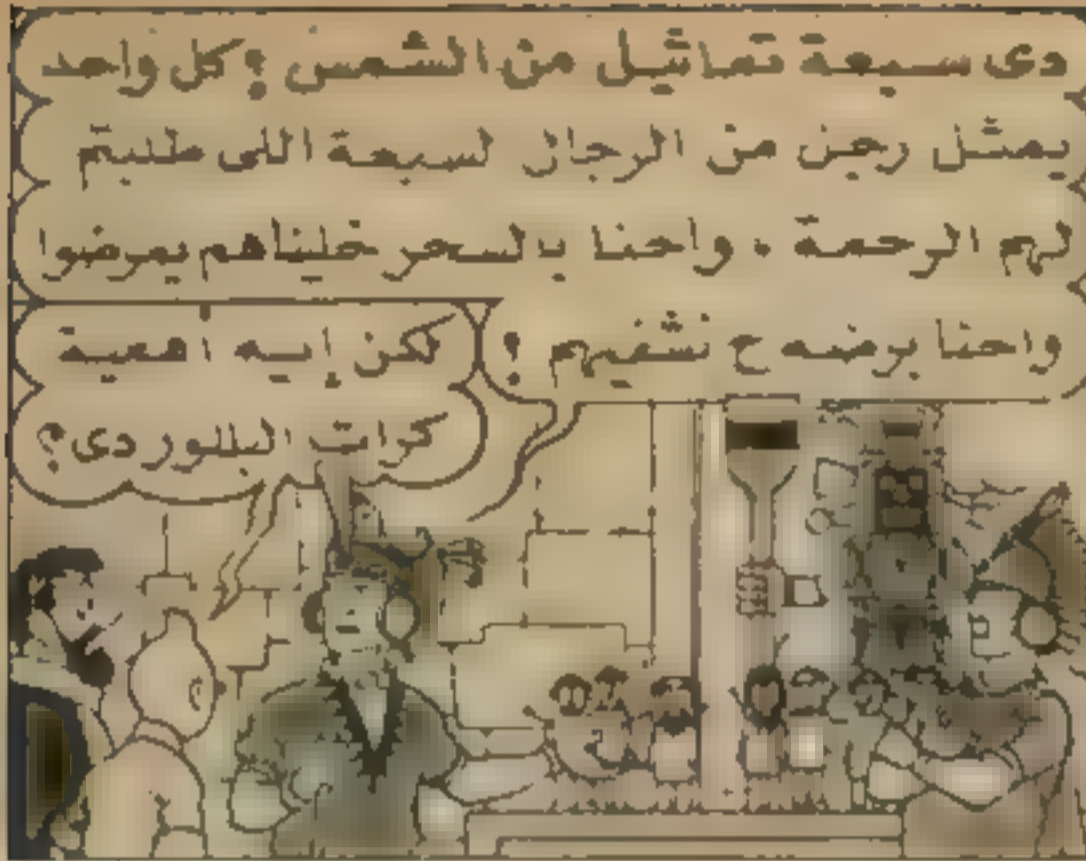 دى سبعة تماثيل من الشمس ؟ كل واحد
يمثل رجن من الرجاز لسبعة اللى طلبتم
لهم الرحمة ٠ واحنا بالسحر خليناهم يمرضوا
واحنا برضه ح نشفيهم !
لكن إيه اهمية
كرات البللور دى ؟